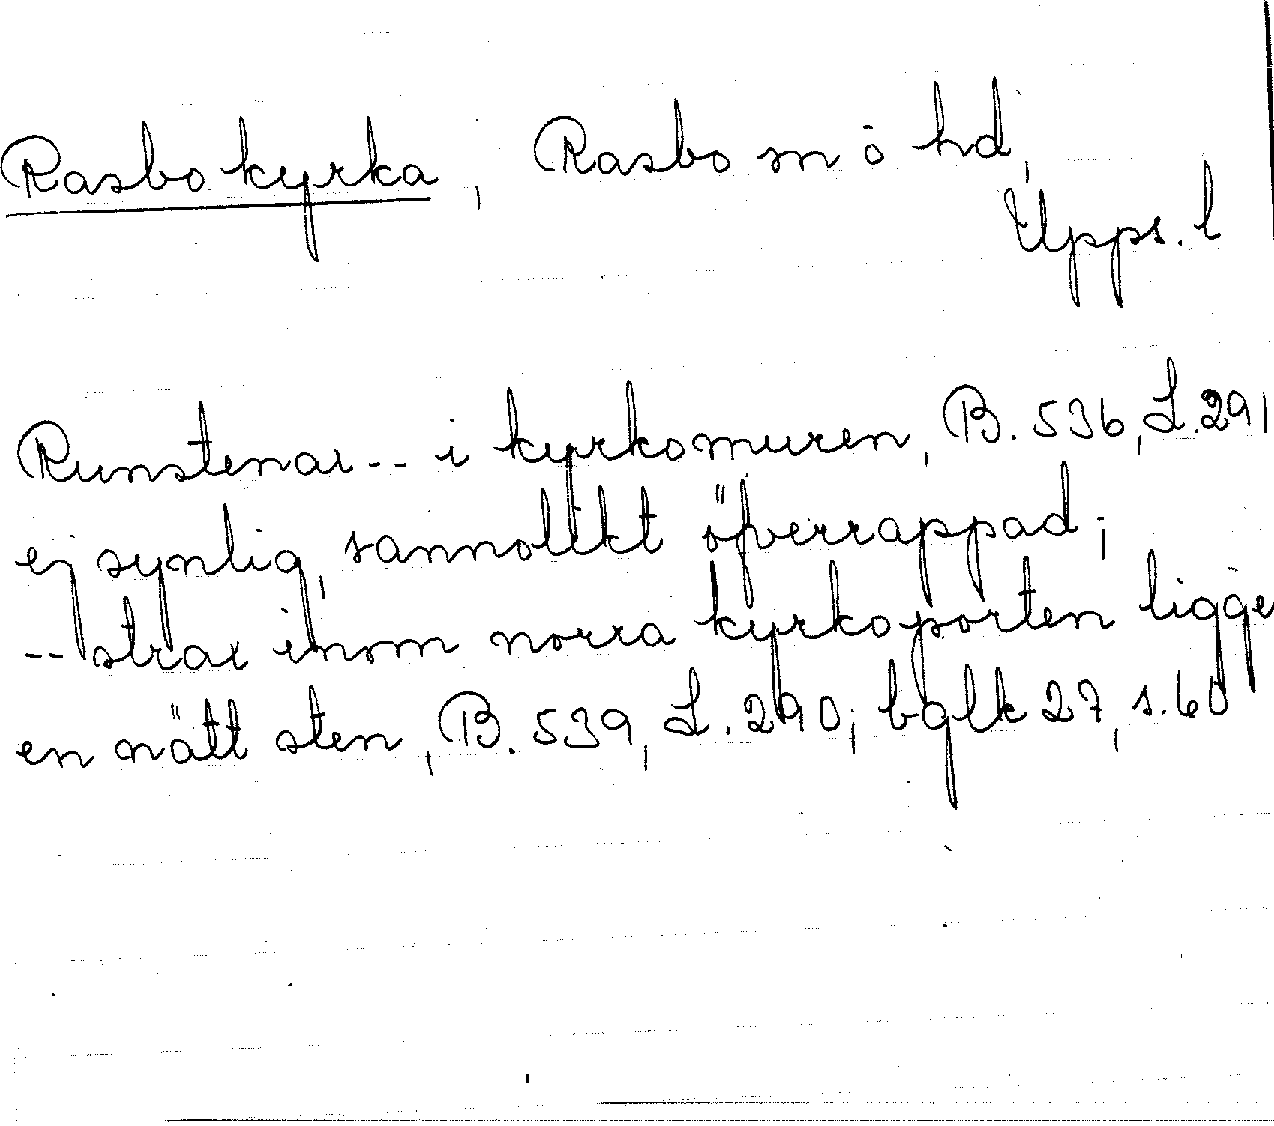 Rasbo kyrka, Rasbo sn o hd,
Upps. l
Runstenar -- i kyrkomuren, B. 536, L. 291
ej synlig, sannolikt öfverrappad;
-- strax inom norra kyrkoporten ligge
en nätt sten, B. 539, L. 290; bglk 27, s. 60